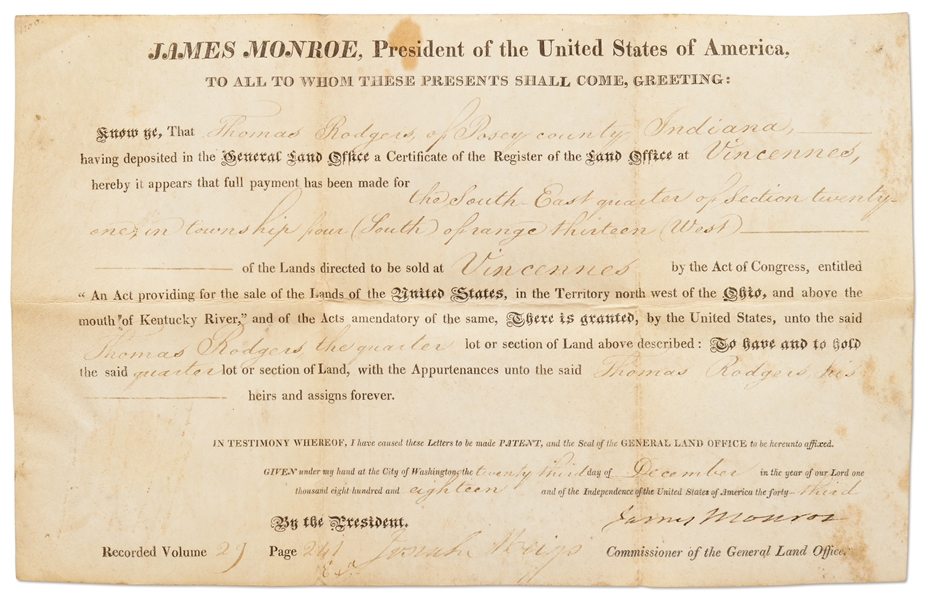 JAMES MONROE, President of the United States of America,
TO ALL TO WHOM THESE PRESENTS SHALL COME, GREETING:
Know ye, That Thomas Rodgers, of Posey county Indiana,
having deposited in the General Land Office a Certificate of the Register of the Land Office at Vincennes,
hereby it appears that full payment has been made for
the South-East quarter of Section twenty-
one, in township four (South) of range thirteen (West)
of the Lands directed to be sold at Vincennes by the Act of Congress, entitled
"An Act providing for the sale of the Lands of the United States, in the Territory north west of the Ohio, and above the
mouth of Kentucky River," and of the Acts amendatory of the same, There is granted, by the United States, unto the said
Thomas Rodgers the quarter lot or section of Land above described: To have and to hold
the said quarter lot or section of Land, with the Appurtenances unto the said Thomas Rodgers his
heirs and assigns forever.
IN TESTIMONY WHEREOF, I have caused these Letters to be made PATENT, and the Seal of the GENERAL LAND OFFICE to be hereunto affixed.
GIVEN under my hand at the City of Washington, the twenty third day of December in the year of our Lord one
thousand eight hundred and eighteen and of the Independence of the United States of America the forty-third
By the President. James Monroe
Recorded Volume 29 Page 241 Josiah Meigs Commissioner of the General Land Office.